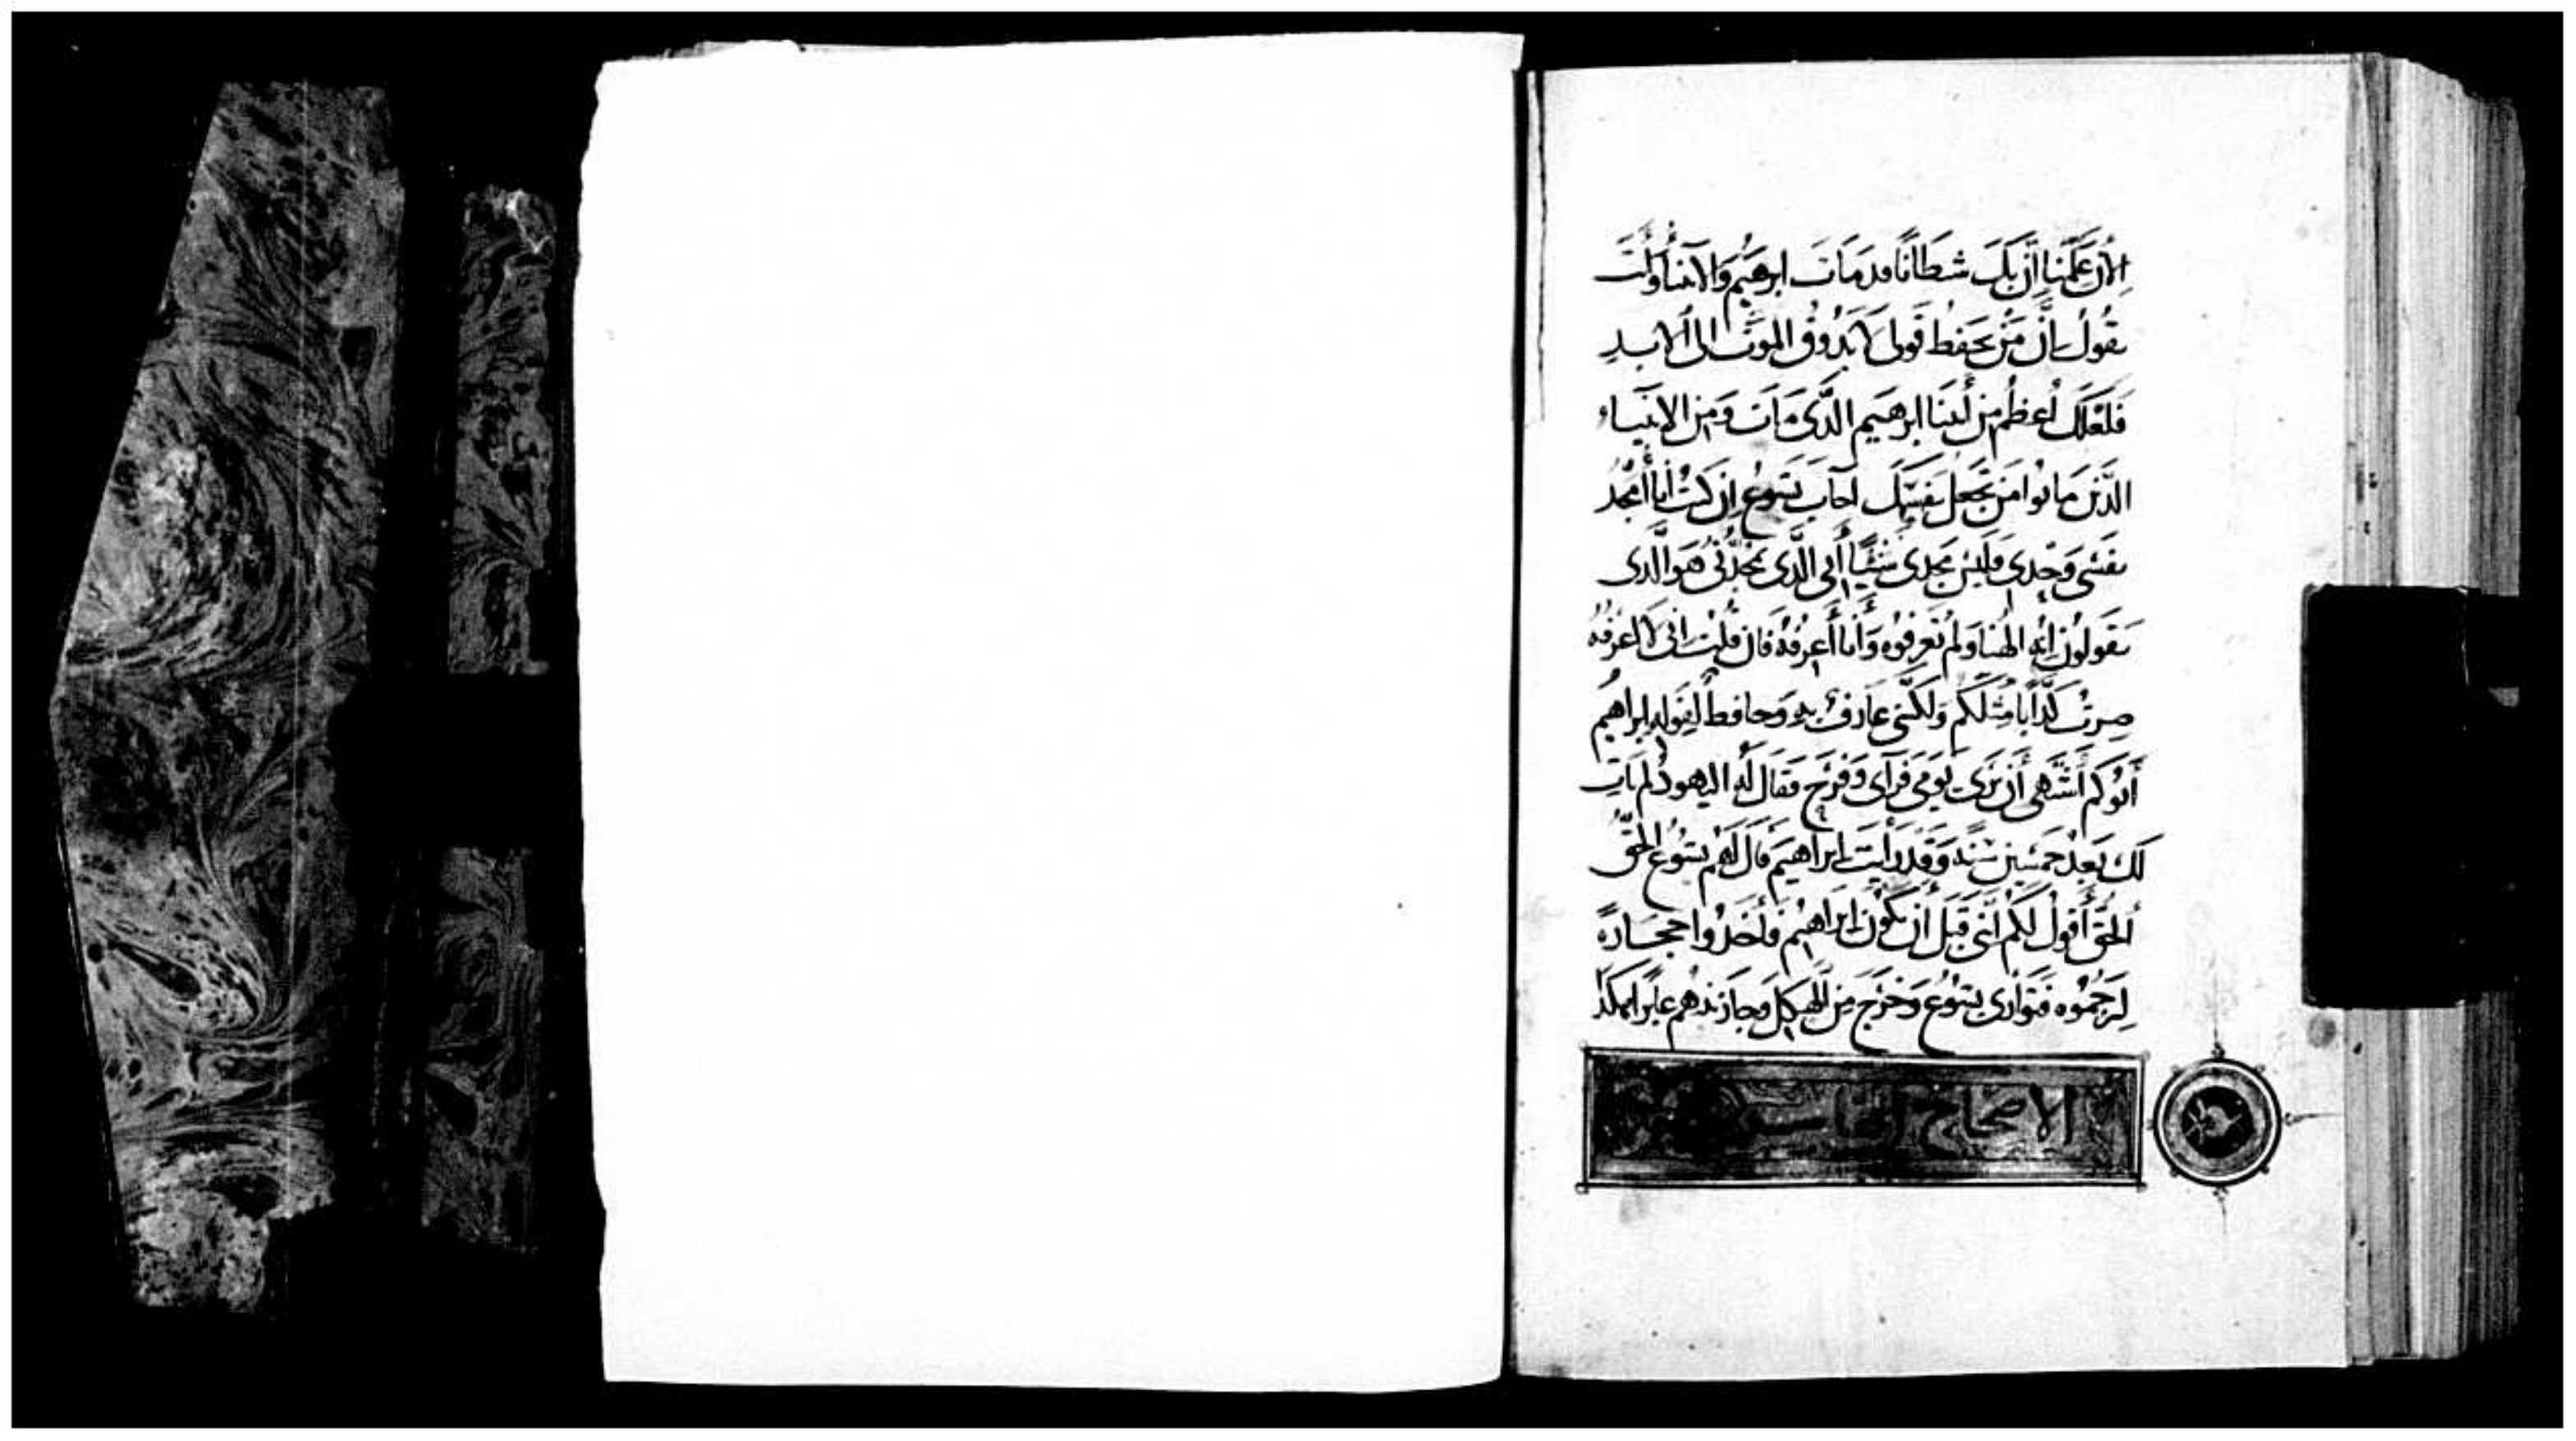 الان علمنا ان بك شطانا قد مات ابرهيم والانبيا وانت
تقول بان من يحفظ قولى لا يذوق الموت الى الابد
فلعلك أعظم من أبينا ابرهيم الذى مات ومن الانبياء
الذين ماتوا من تجعل نفسك اجاب يسوع ان كنت أنا أمجد
نفسى وحدى فليس مجدى شئيا أبى الذى يمجدنى هو الذى
تقولون انه الهنا ولم تعرفوه وأنا أعرفه فان قلت انى لا اعرفه
صرت كذابا مثلكم ولكنى عارف به وحافظ لقوله ابراهيم
أبوكم أشتهى أن يرى يومى فرآى وفرح فقال له اليهود لم يات
لك بعد خمسين سنه وقد رأيت ابراهيم قال لهم يسوع الحق
الحق أقول لكم اننى قبل أن يكون ابراهيم فأخذوا حجارة
ليرجموه فتوارى يسوع وخرج من الهيكل وجاز بينهم عابرا هكذا
الاصحاح التاسع